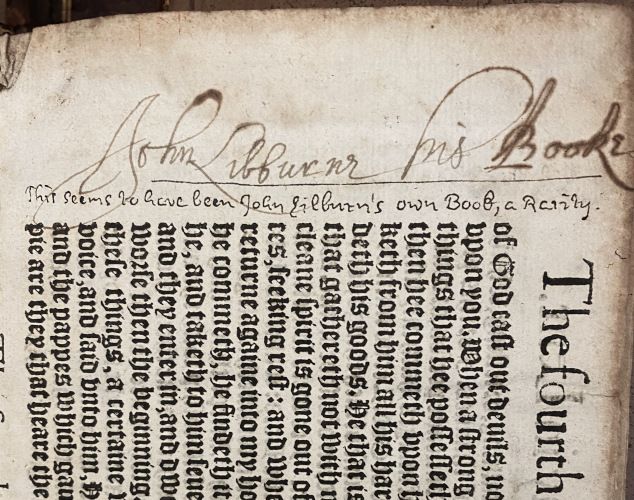 John Lilburne his Booke
This seems to have been John Lilburn's own Book, a Rarity.
The fourth
of God cast out deuils, no
vpon you. When a strong
things that he possesseth
then hee commeth vpon
keth from him al his har
deth his goods. He that is
that gathereth not with
cleane spirit is gone out of
ces, seeking rest: and whe
returne againe into my ho
he commeth, he findeth it
he, and taketh to himselfe
and they enter in, and dwe
worse then the beginning
these things, a certaine
voice, and said vnto him,
and the pappes which gau
are they that heare the